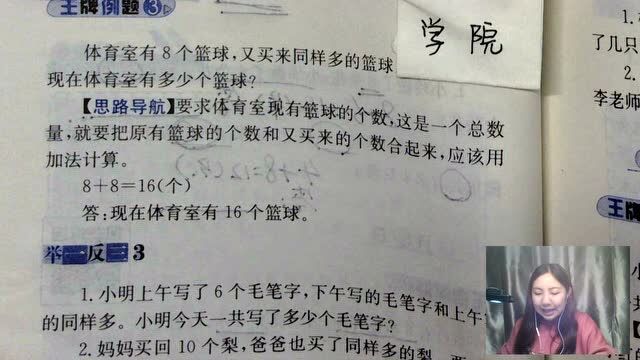 王牌例题③
学院
体育室有8个篮球,又买来同样多的篮球
现在体育室有多少个篮球?
【思路导航】要求体育室现有篮球的个数,这是一个总数
量,就要把原有篮球的个数和又买来的个数合起来,应该用
加法计算。
8+8=16(个)
答:现在体育室有16个篮球。
举一反三3
1.小明上午写了6个毛笔字,下午写的毛笔字和上午
的同样多。小明今天一共写了多少个毛笔字?
2.妈妈买回10个梨,爸爸也买了同样多的梨
1.
了几只
2.
李老师
王牌